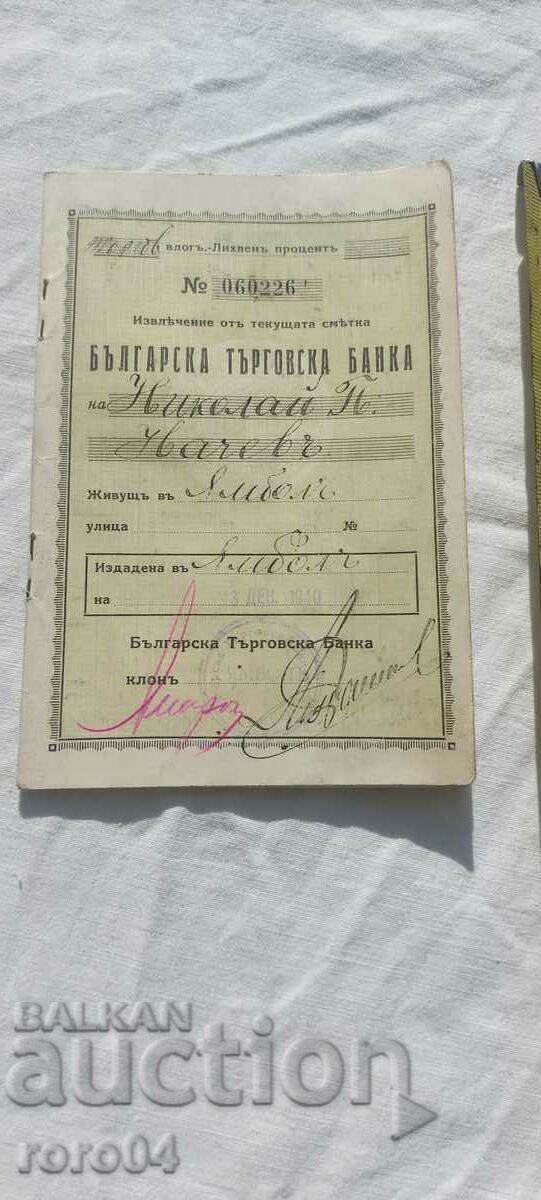 влогъ.-Лихвенъ процентъ
№ 060226
Извлѣчение отъ текущата смѣтка
БЪЛГАРСКА ТЪРГОВСКА БАНКА
на Николай П.
Начевъ
Живущъ въ Ямболъ
улица №
Издадена въ Ямболъ
на 3 ДЕК. 1940
Българска Търговска Банка
клонъ
BALKAN
auction
roro04